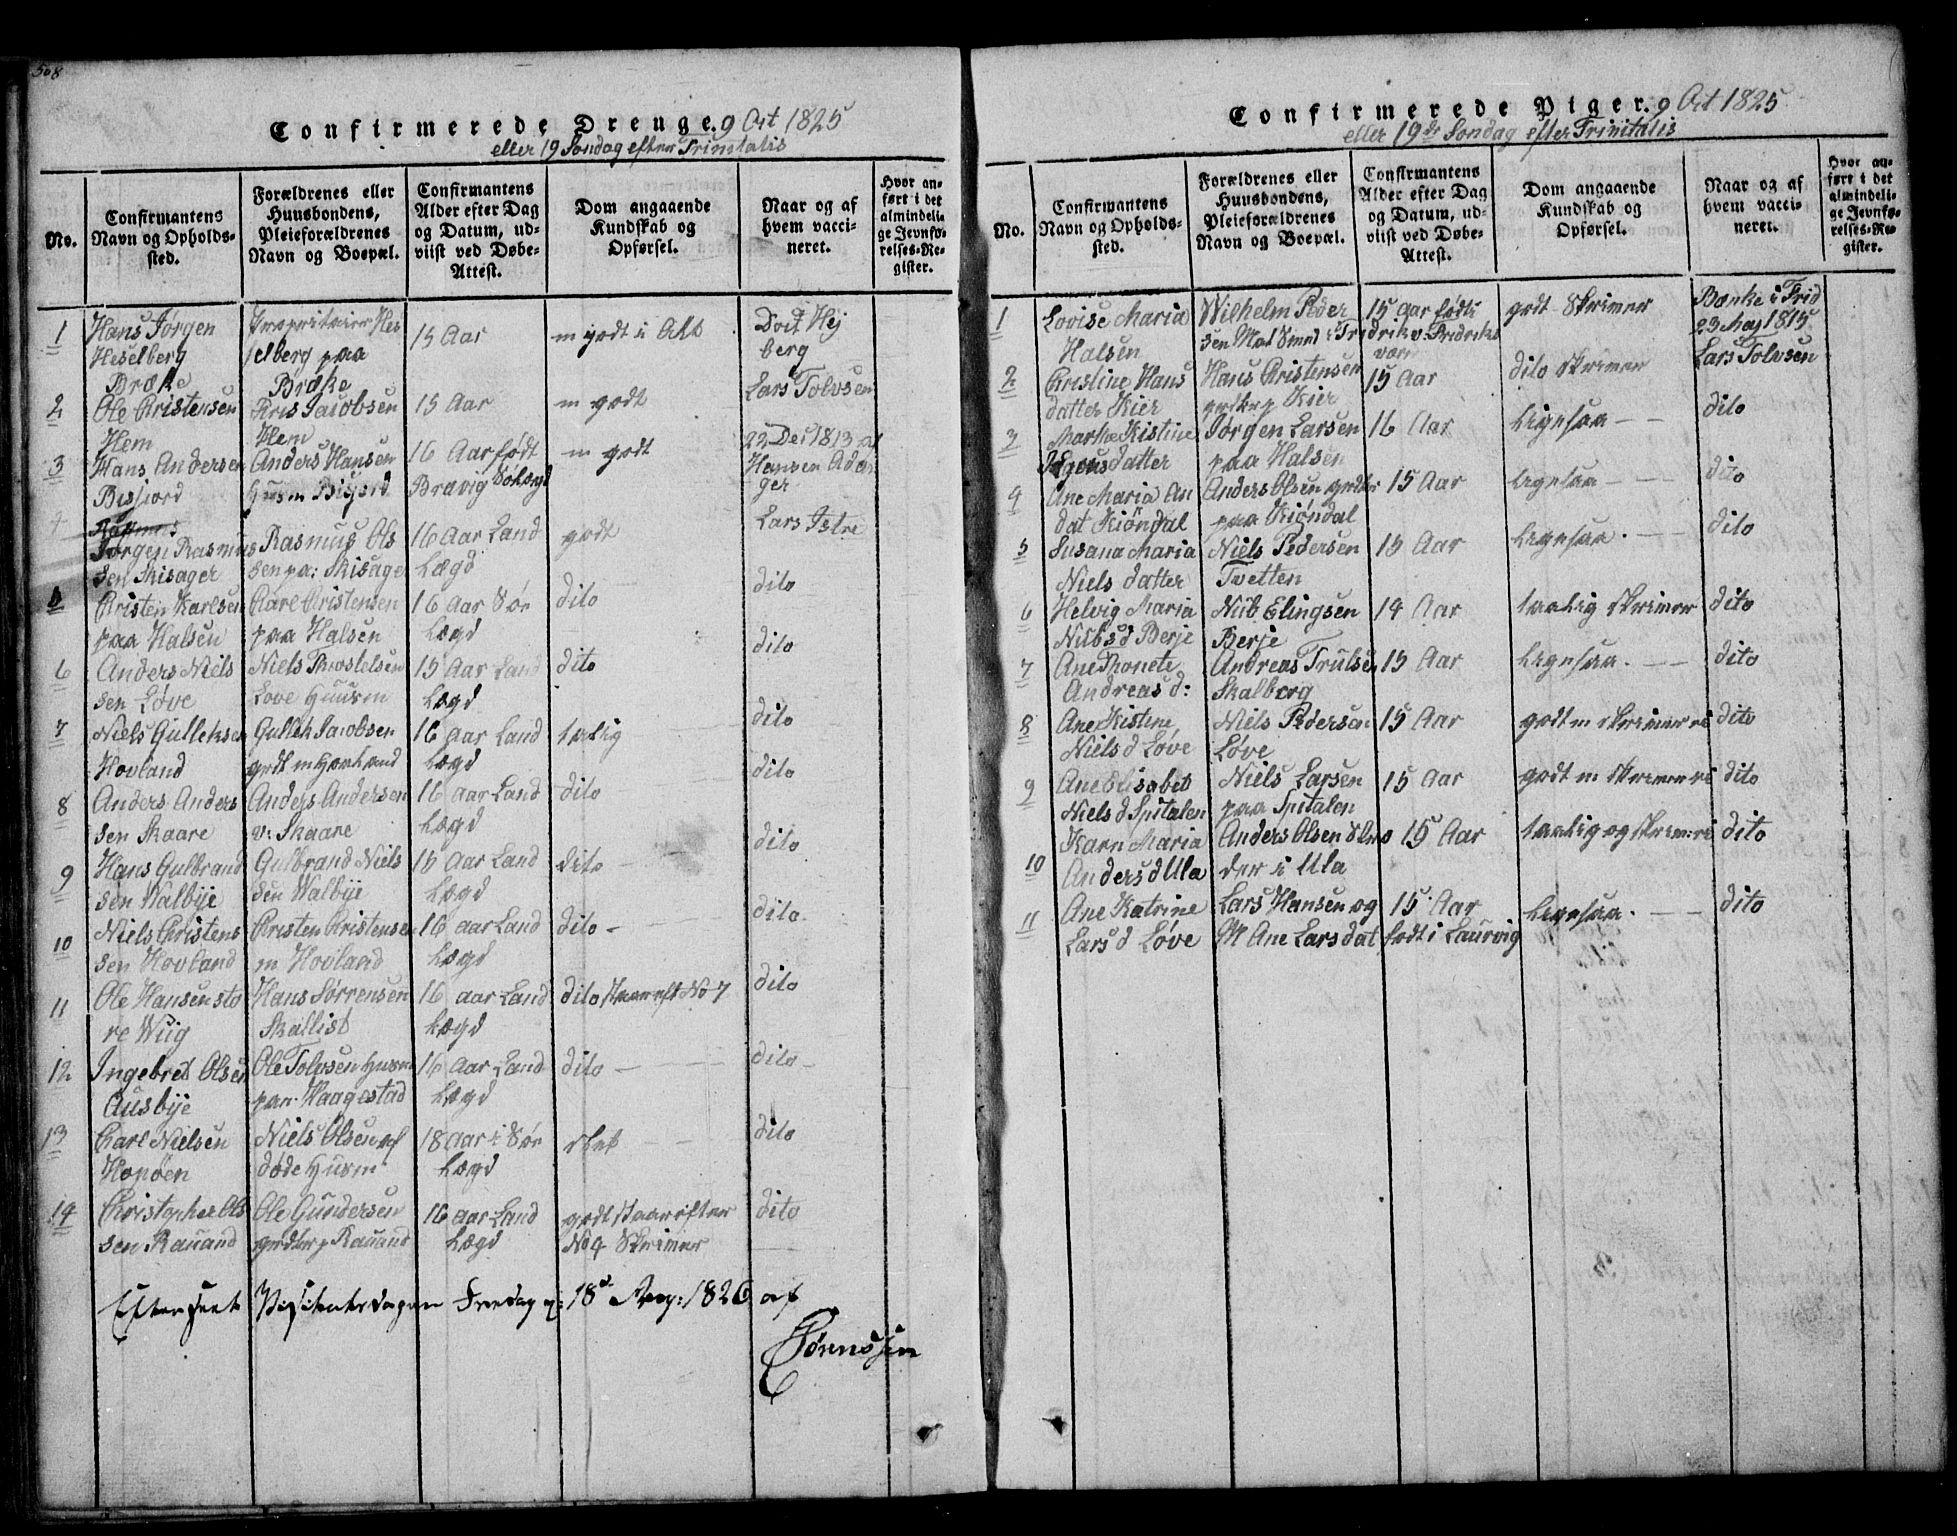 508
Confirmerede Drenge. 9 Oct 1825
eller 19 Søndag efter Trinitatis
No.
Confirmantens Navn og Opholds-sted.
Forældrenes eller Huusbondens, Pleieforældrenes Navn og Boepæl.
Confirmantens Alder efter Dag og Datum, ud-viist ved Døbe-Attest.
Dom angaaende Kundskab og Opførsel.
Naar og af hvem vacci-neret.
Hvor an-ført i det almindeli-ge Jevnfø-relses-Re-gister.
1 Hans Jørgen Heselberg Bræke
Propritairer Heselberg paa Bræke
15 Aar
m godt i Alt
Doct Hejberg
2 Ole Cristensen Hem
Kris Jacobsen Hem
15 Aar
m godt
Lars Tolvsen
3 Hans Andersen Bisjord
Anders Hansen Husm Bisjord
16 Aar født
m godt
22 Dec 1813 af Hansen
4 Jørgen Rasmussen Skisager
Rasmus Olsen pa: Skisager
16 Aar Land Lægd
godt
Lars Istre
5 Cristen Karlsen paa Halsen
Carl Cristensen paa Halsen
16 Aar Sør Lægd
dito
dito
6 Anders Nielsen Løve
Niels Throstelsen Løve Huusm
15 Aar Land Lægd
dito
dito
7 Niels Gulleksen Hovland
Gullek Jacobsen
16 aar Land Lægd
talig
dito
8 Anders Andersen Skaare
Anders Andersen v: Skaare
16 aar Land Lægd
dito
dito
9 Hans Gulbrandsen Walbye
Gulbrand Nielsen Walbye
15 Aar Land Lægd
dito
dito
10 Niels Christensen Hovland
Cristen Cristensen m Hovland
16 aar Land Lægd
dito
dito
11 Ole Hansen store Wiig
Hans Sørrensen Skallist
16 aar Land Lægd
dito staar eft No 7
dito
12 Ingebret Olsen Ausbye
Ole Tolvsen Husm paa Haagestad
16 Aar Land Lægd
dito
dito
13 Carl Nielsen Hopøen
Niels Olsen afdøde Husm
18 aar i Sør Lægd
slet
dito
14 Christopher Olsen Rauand
Ole Gundersen Rauand
16 aar Land Lægd
godt staar efter No 4 Skriver
dito
Efterseet Visitatsdagen Fredag d: 18de Aug: 1826 af
Sørenssen
Confirmerede Piger. 9 Oct 1825
eller 19de Søndag efter Trinitatis
No.
Confirmantens Navn og Opholds-sted.
Forældrenes eller Huusbondens, Pleieforældrenes Navn og Boepæl.
Confirmantens Alder efter Dag og Datum, ud-viist ved Døbe-Attest.
Dom angaaende Kundskab og Opførsel.
Naar og af hvem vacci-neret.
Hvor an-ført i det almindeli-ge Jevnfø-relses-Re-gister.
1 Lovise Maria Halsen
Wilhelm Pedersen
15 Aar født i
godt Skriver
Banke i Frid 23 Maj 1815
2 Cristine Hansdatter Kier
Hans Cristensen Kier
15 Aar
dito Skriver
Lars Tolvsen
3 Marthe Kistine Jørgensdatter
Jørgen Larsen paa Halsen
16 Aar
ligesaa
dito
4 Ane Maria An dat Kiøndal
Anders Olsen paa Kiøndal
15 Aar
ligesaa
dito
5 Susana Maria Niels datter
Niels Pedersen Twetten
15 Aar
ligesaa
dito
6 Helvig Maria Berje
Elingsen Berje
14 Aar
taalig Skriver
dito
7 Ane Thonete Andreas d:
Andreas Trulsen Skalberg
15 Aar
ligesaa
dito
8 Ane Kistine Niels d Løve
Niels Pedersen Løve
15 Aar
godt m skriver
dito
9 Ane Elisabet Niels d Spitalen
Niels Larsen paa Spitalen
15 Aar
godt m Skriver
dito
10 Karn Maria Anders d Ula
Anders Olsen i Ula
15 Aar
taalig og skriver
dito
11 Ane Katrine Lars d Løve
Lars Hansen og Ane Larsdat
15 Aar født i Laurvig
ligesaa
dito